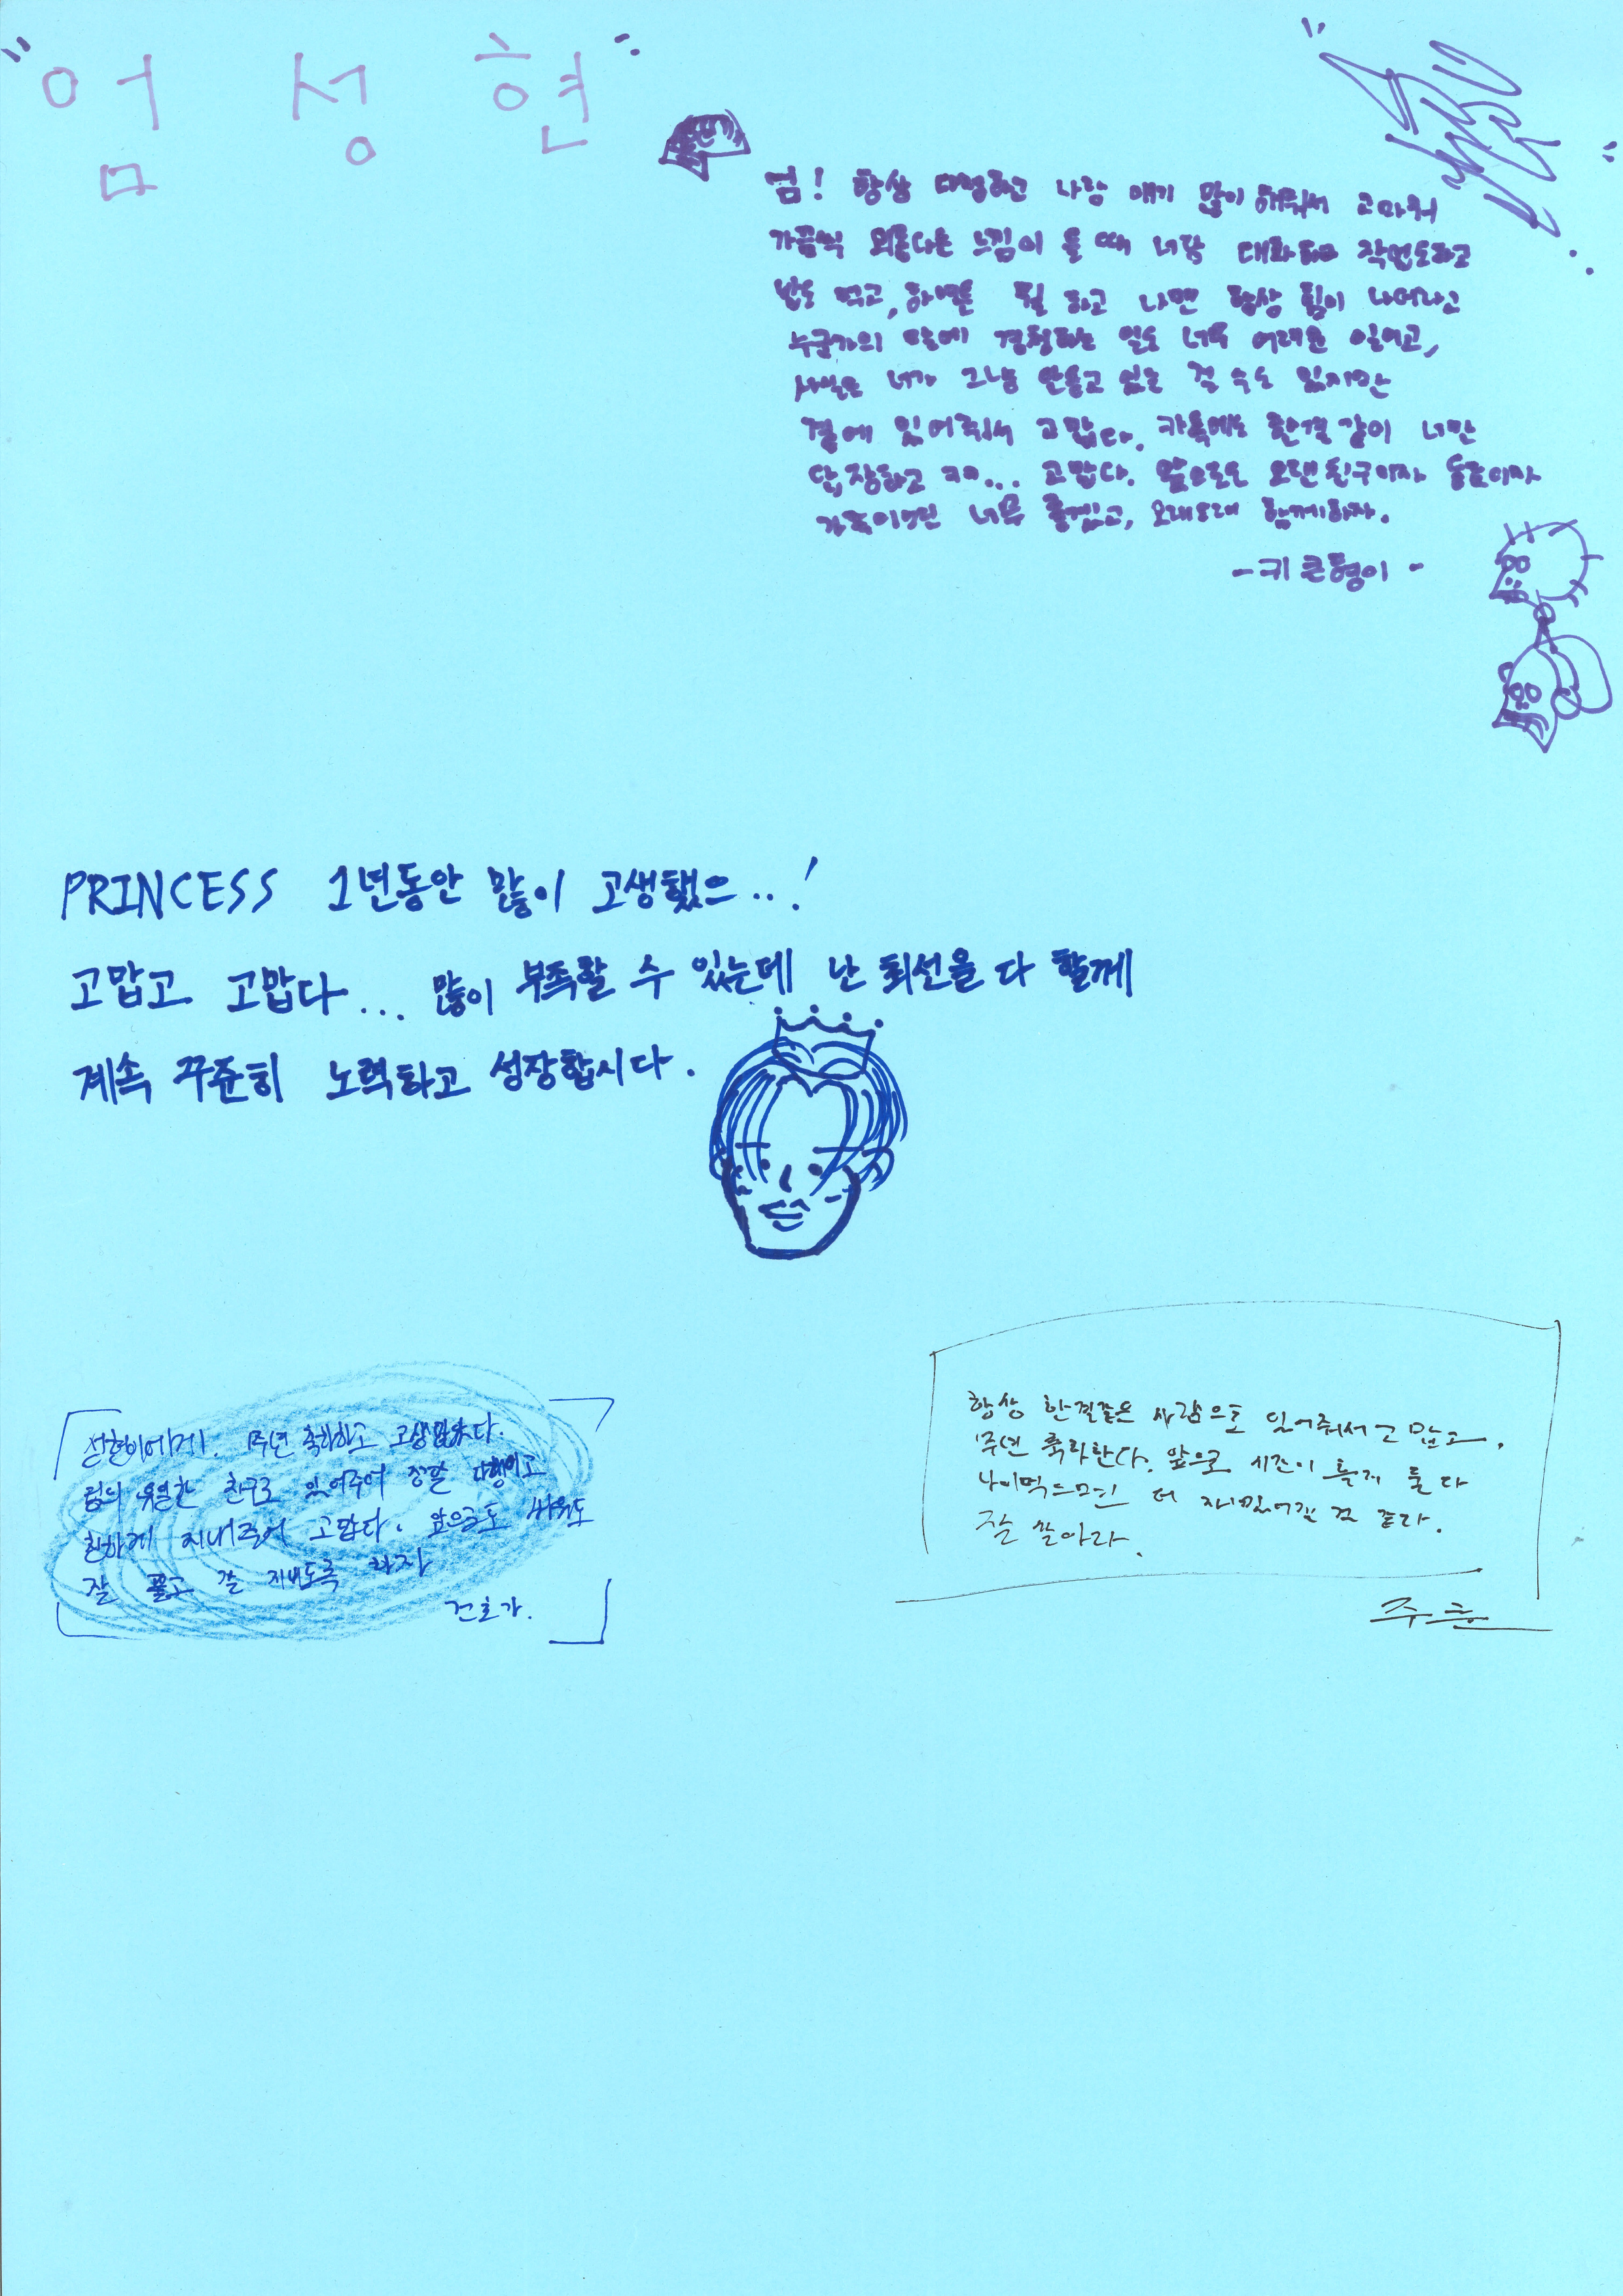 엄 성 현
엄! 항상 다정하고 나랑 얘기 많이 해줘서 고마워
가끔씩 외롭다는 느낌이 들 때 너랑 대화하며 작업도하고
밥도 먹고, 하여튼 뭘 하고 나면 항상 힘이 나더라고
누군가의 말에 경청하는 일도 너무 어려운 일이고,
사실은 너가 그냥 안듣고 있는 걸 수도 있지만
곁에 있어줘서 고맙다. 카톡에도 한결같이 너만
답장하고 ㅋㅋ... 고맙다. 앞으로도 오랜친구이자 동료이자
가족이면 너무 좋겠고, 오래오래 함께하자.
- 키 큰 형이 -
PRINCESS 1년동안 많이 고생했으..!
고맙고 고맙다... 많이 부족할 수 있는데 난 최선을 다 할께
계속 꾸준히 노력하고 성장합시다.
성현이에게. 1주년 축하하고 고생많았다.
팀의 유일한 친구로 있어주어 정말 다행이고
친하게 지내주어 고맙다. 앞으로도 싸워도
잘 풀고 잘 지내도록 하자
건호가.
항상 한결같은 사람으로 있어줘서 고맙고,
1주년 축하한다. 앞으로 시간이 흘러 둘 다
나이먹으면 더 재밌어질 것 같다.
잘 살아라.
주훈